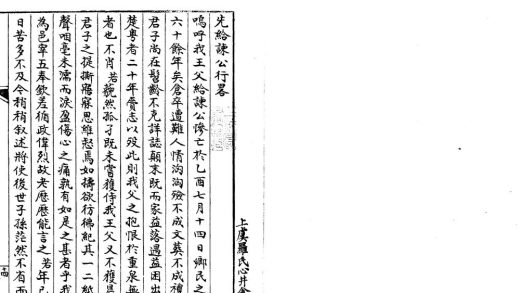 先給諫公行畧
嗚呼我王父給諫公慘亡於乙酉七月十四日鄉民之
六十餘年矣倉卒遭難人情洶洶殮不成文葬不成禮
君子尚在髫齡不克詳誌顛末既而家益落遇益困出
楚粵者二十年賫志以歿此則我父之抱恨於重泉無
者也不肖若藐然孤子既未嘗獲侍我王父又不獲
君子之提撕寤寐思維怒焉如擣欲彷彿紀其一二
聲咽毫未濡而淚盈傷心之痛孰有如是之甚者乎我
為邑宰五奉欽差循政偉烈故老歷歷能言之若年已
日苦多不及今稍稍叙述將使後世子孫茫然不有
上虞羅氏心井